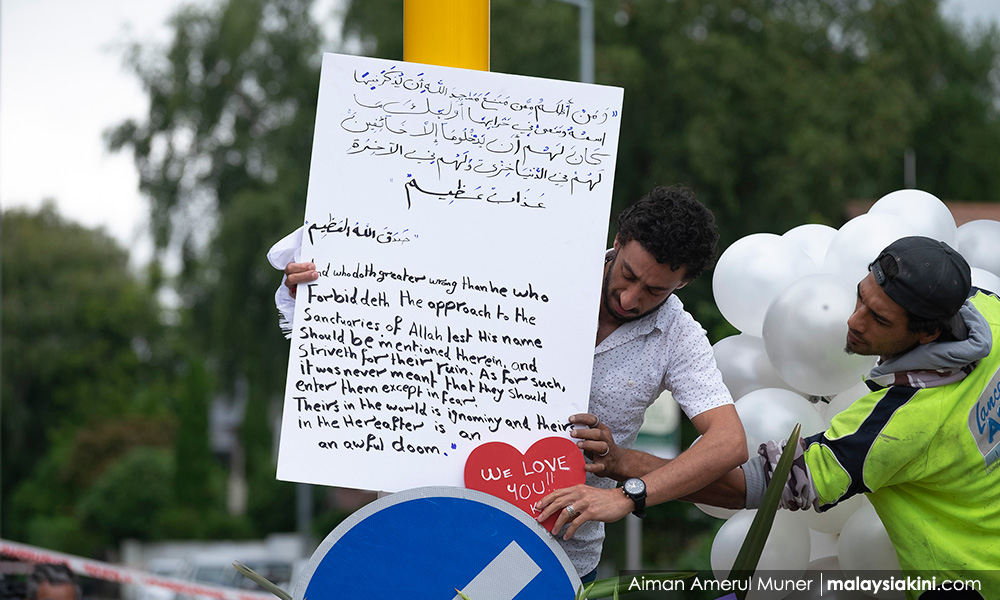 "وَمَنْ أَظْلَمُ مِمَّن مَّنَعَ مَسَاجِدَ اللَّهِ أَن يُذْكَرَ فِيهَا
اسْمُهُ وَسَعَىٰ فِي خَرَابِهَا أُولَٰئِكَ مَا
كَانَ لَهُمْ أَن يَدْخُلُوهَا إِلَّا خَائِفِينَ
لَهُمْ فِي الدُّنْيَا خِزْيٌ وَلَهُمْ فِي الآخِرَةِ
عَذَابٌ عَظِيمٌ"
"صَدَقَ اللَّهُ العَظِيم"
And who doth greater wrong than he who
Forbiddeth the approach to the
Sanctuaries of Allah lest His name
Should be mentioned therein, and
Striveth for their ruin. As for such,
it was never meant that they should
enter them except in fear.
Theirs in the world is ignominy and their
In the Hereafter is an
an awful doom."
WE LOVE
YOU!!
Aiman Amerul Muner | malaysiakini.com